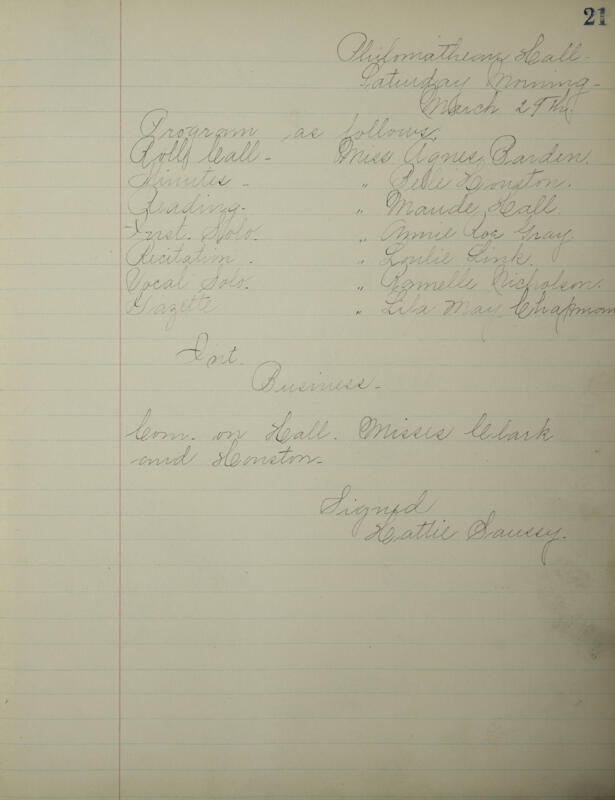 21
Philomathean Hall.
Saturday Morning-
March 29th
Program as follows.
Roll Call - Miss Agnes Barden.
Minutes - " Belle Houston.
Reading. " Maude Hall
Inst. Solo. " Annie Roe Gray.
Recitation. " Loulie Link.
Vocal Solo. " Nicholson.
Gazette " Lila May Chapman
Int.
Business -
Com. on Hall. Misses Clark
and Houston-
Signed
Hattie Saussy.